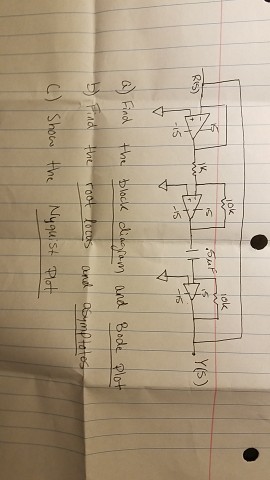 R(s)
15
-15
1K
10K
15
-15
.5µF
10K
15
-15
Y(s)
a) Find the block diagram and Bode Plot
b) Find the root locus and asymptotes
c) Show the Nyquist Plot